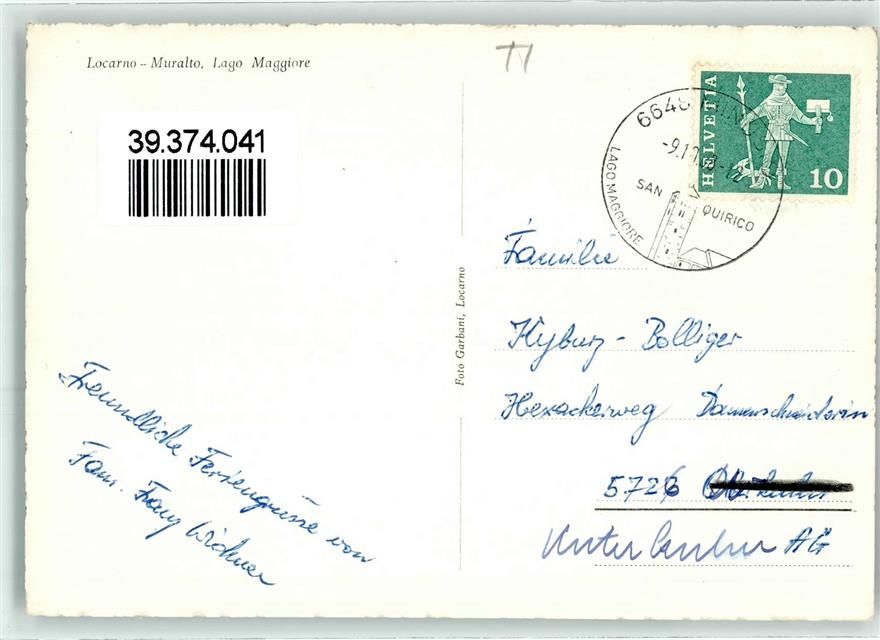 Locarno – Muralto, Lago Maggiore
39.374.041
HELVETIA
10
6648 MINUSIO
-9.1
LAGO MAGGIORE
SAN QUIRICO
Foto Garbani, Locarno
Familie
Kyburz - Bolliger
Hexackerweg Damenschneiderin
5726
Unterkulm AG
Freundliche Feriengrüsse von
Fam.